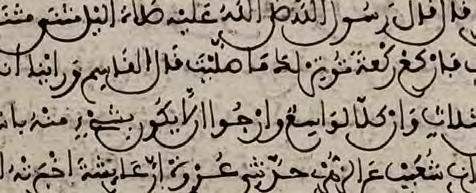 قال قال رسول الله صلى الله عليه صلاة الليل مثنى مثنى
فاركع ركعة توتر لك ما صليت قال القاسم ورأينا
بثلاث وإن كلا لواسع وارجوا ألا يكون بشيء منه
شعيب عن الزهري حدثني عروة أن عايشة أخبرته